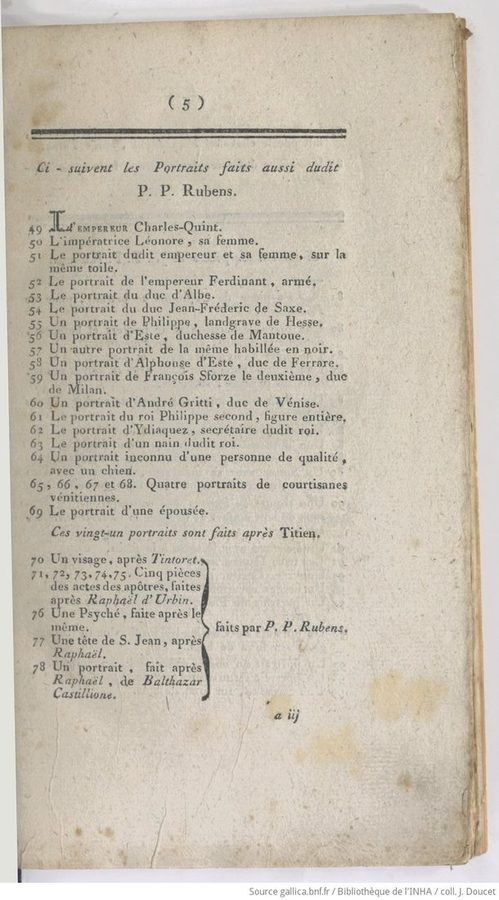 ( 5 )
Ci - suivent les Portraits faits aussi dudit
P. P. Rubens.
49 L'EMPEREUR Charles-Quint.
50 L'impératrice Léonore, sa femme.
51 Le portrait dudit empereur et sa femme, sur la
même toile.
52 Le portrait de l'empereur Ferdinant, armé.
53 Le portrait du duc d'Albe.
54 Le portrait du duc Jean-Fréderic de Saxe.
55 Un portrait de Philippe, landgrave de Hesse.
56 Un portrait d'Este, duchesse de Mantoue.
57 Un autre portrait de la même habillée en noir.
58 Un portrait d'Alphonse d'Este, duc de Ferrare.
59 Un portrait de François Sforze le deuxième, duc
de Milan.
60 Un portrait d'André Gritti, duc de Vénise.
61 Le portrait du roi Philippe second, figure entière.
62 Le portrait d'Ydiaquez, secrétaire dudit roi.
63 Le portrait d'un nain dudit roi.
64 Un portrait inconnu d'une personne de qualité,
avec un chien.
65, 66, 67 et 68. Quatre portraits de courtisanes
vénitiennes.
69 Le portrait d'une épousée.
Ces vingt-un portraits sont faits après Titien.
70 Un visage, après Tintoret.
71, 72, 73, 74, 75. Cinq pièces
des actes des apôtres, faites
après Raphaël d'Urbin.
76 Une Psyché, faite après le
même.
faits par P. P. Rubens.
77 Une tête de S. Jean, après
Raphaël.
78 Un portrait, fait après
Raphaël, de Balthazar
Castillione.
a iij
Source gallica.bnf.fr / Bibliothèque de l'INHA / coll. J. Doucet